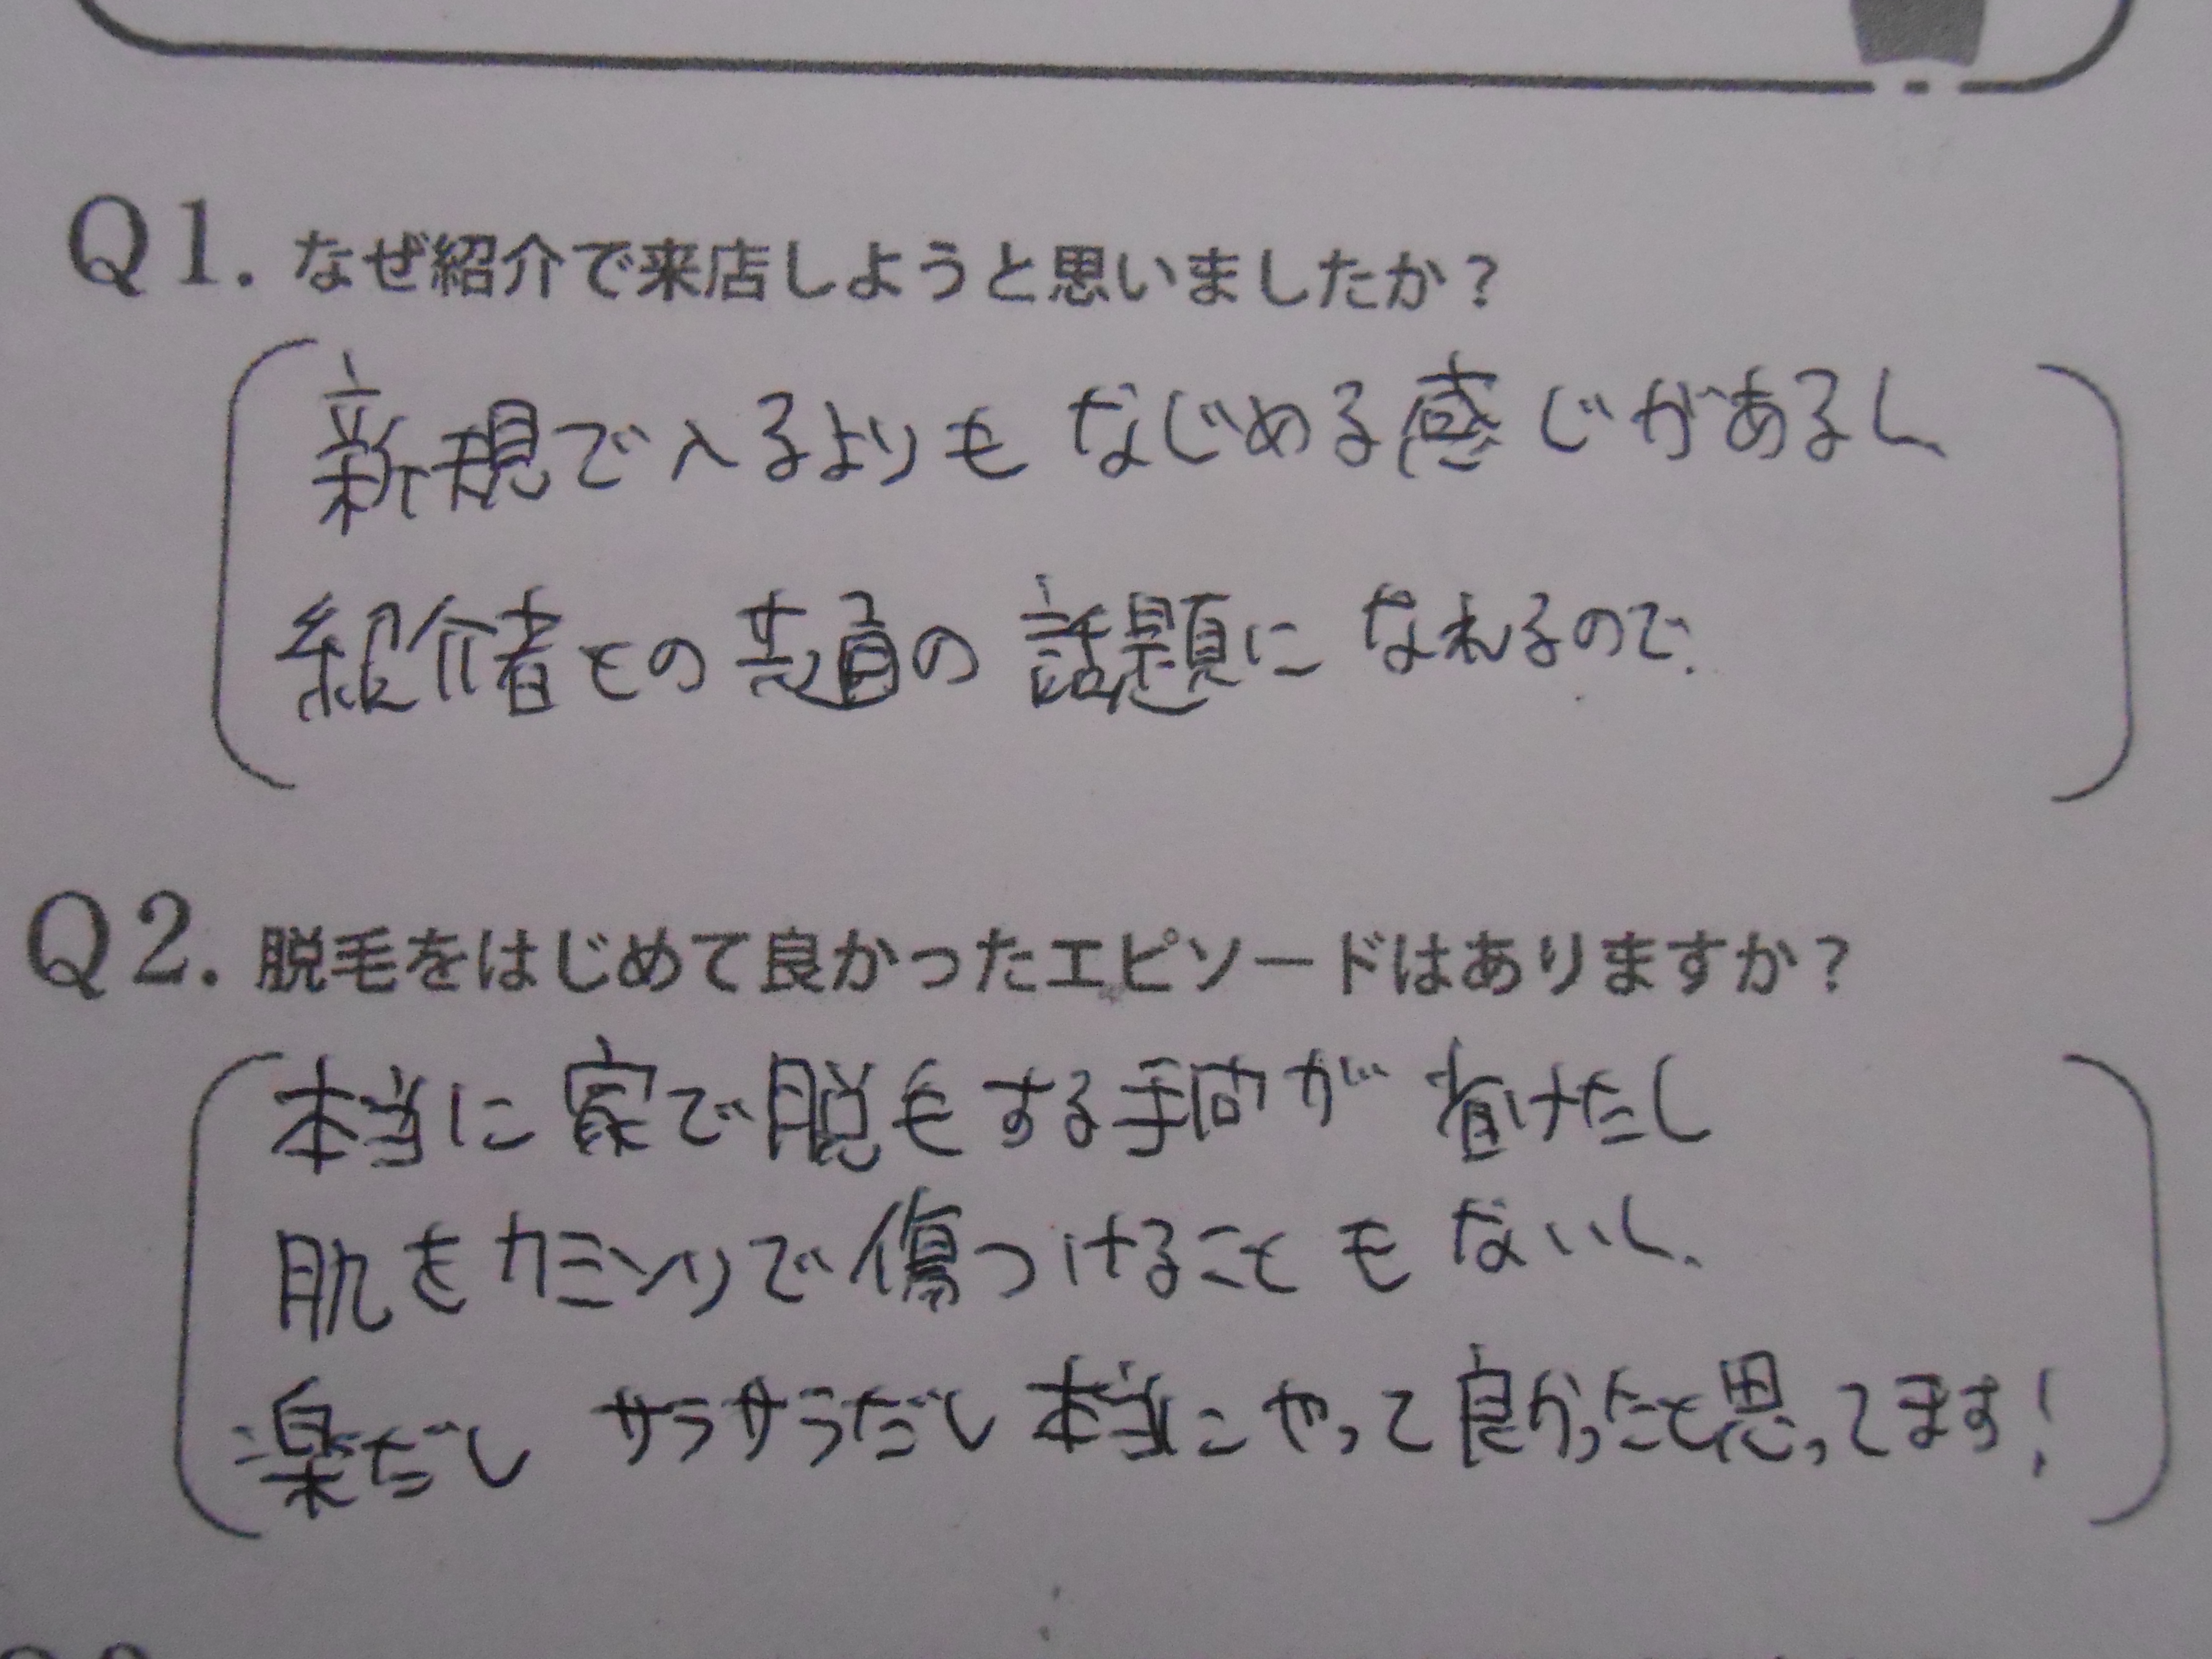 Q1. なぜ紹介で来店しようと思いましたか？
新規で入るよりも なじめる感じがあるし
紹介者との共通の話題に なれるので.
Q2. 脱毛をはじめて良かったエピソードはありますか？
本当に家で脱毛する手間が 省けたし
肌をカミソリで傷つけることもないし、
楽だし サラサラだし 本当にやって良かったと思ってます!